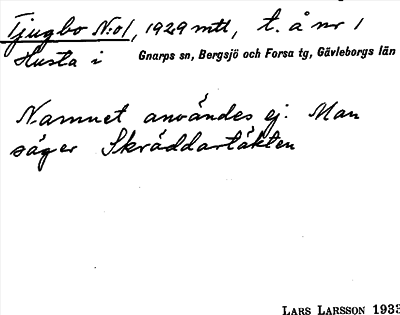 Tjugbo N:o1, 1929 mtl, t. å nr 1
Husta i Gnarps sn, Bergsjö och Forsa tg, Gävleborgs län
Namnet användes ej. Man
säger Skräddartäkten
LARS LARSSON 1933